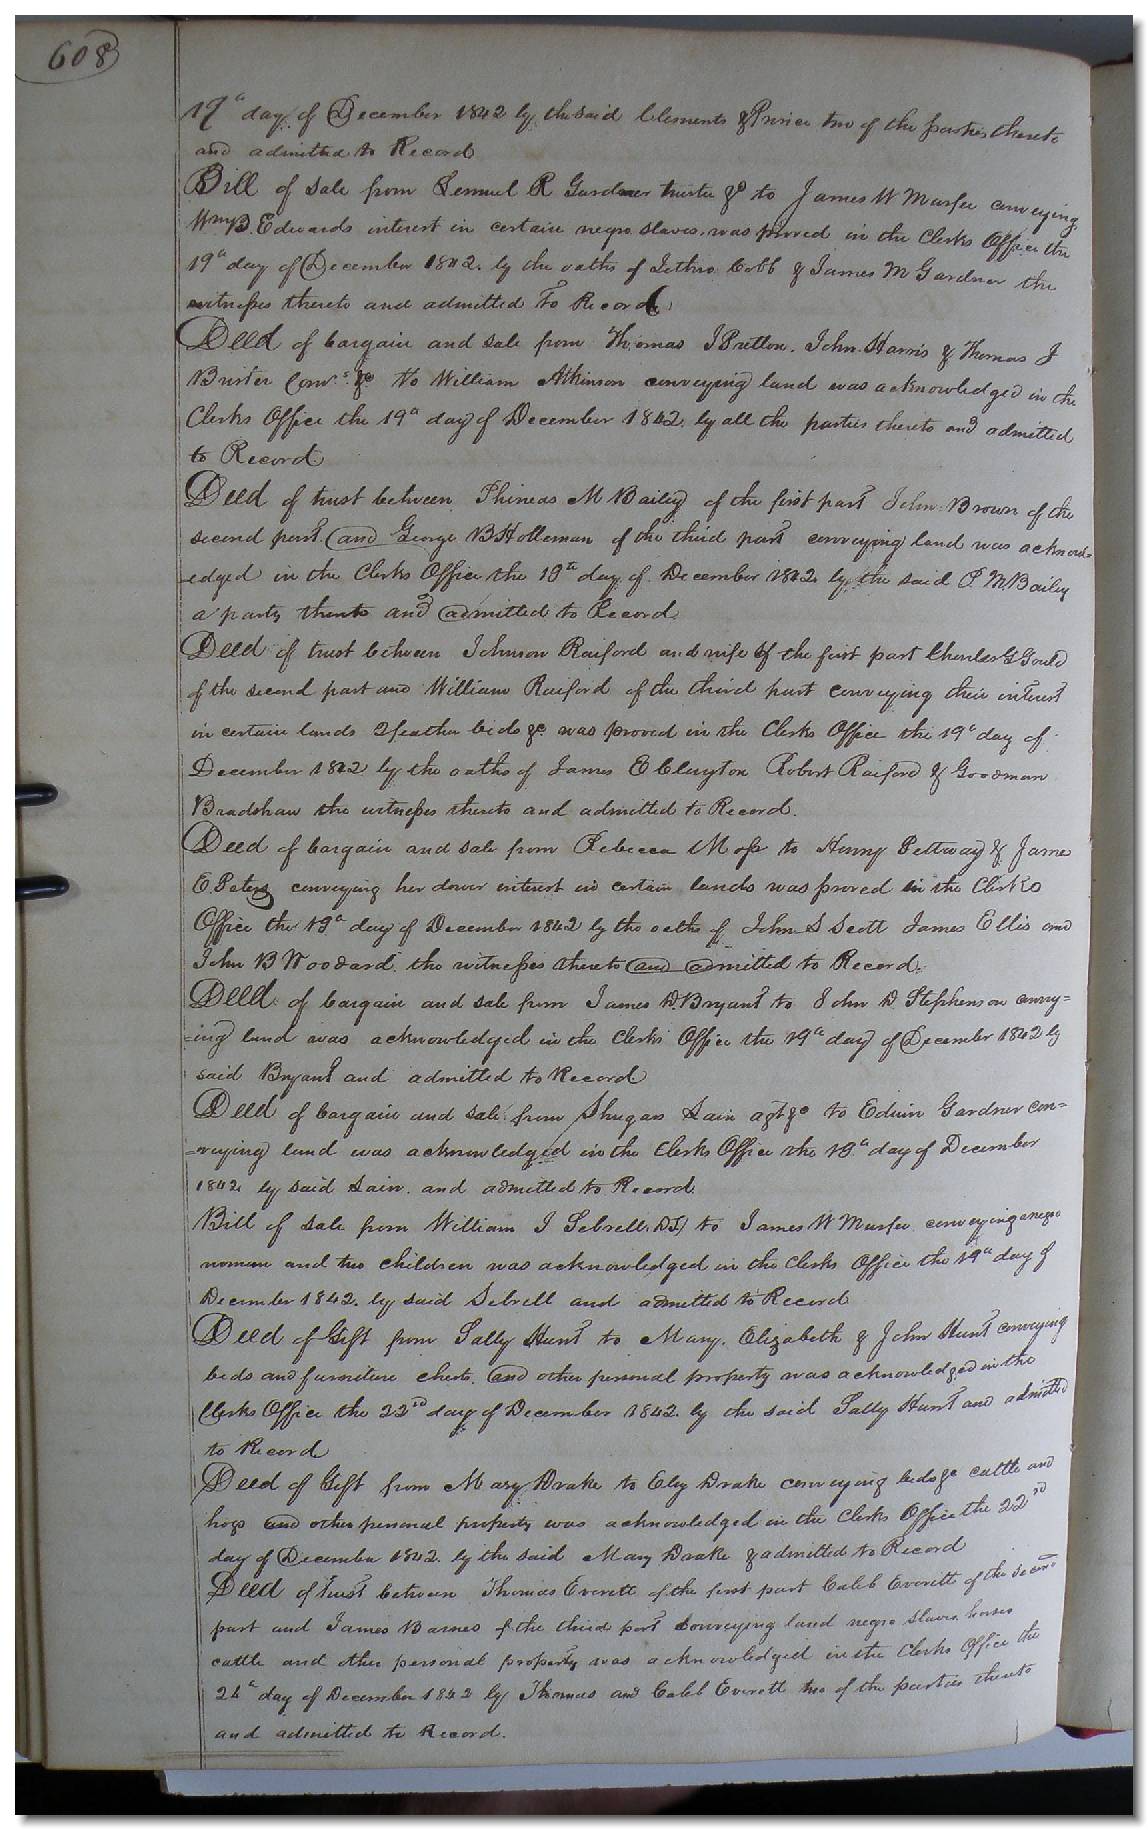 608
19th day of December 1842 by the said Clements & two of the parties thereto
and admitted to Record
Bill of Sale from Lemuel R Gardner trustee &c to James W Murfee conveying
Wm B. Edwards interest in certain negro slaves, was proved in the Clerks Office the
19th day of December 1842. by the oaths of Jethro Cobb & James M Gardner the
witnesses thereto and admitted to Record
Deed of bargain and sale from Thomas J Pretlow. John Harris & Thomas J
Com.rs &c to William Atkinson conveying land was acknowledged in the
Clerks Office the 19th day of December 1842. by all the parties thereto and admitted
to Record
Deed of trust between Phineas M Bailey of the first part John Brown of the
second part and George B Holleman of the third part conveying land was acknowl-
-edged in the Clerks Office the 19th day of December 1842 by the said P. M. Bailey
a party thereto and admitted to Record.
Deed of trust between Johnson Raiford and wife of the first part Charles G Gould
of the second part and William Raiford of the third part conveying their interest
in certain lands 2 feather beds &c was proved in the Clerks Office the 19th day of
December 1842 by the oaths of James E Clayton Robert Raiford & Goodman
Bradshaw the witnesses thereto and admitted to Record.
Deed of bargain and sale from Rebecca Moss to Henry Pettway & James
E Peters conveying her dower interest in certain lands was proved in the Clerks
Office the 19th day of December 1842 by the oaths of John S Scott James Ellis and
John B Woodard. the witnesses thereto and admitted to Record.
Deed of bargain and sale from James D. Bryant to John D Stephenson convey=
=ing land was acknowledged in the Clerks Office the 19th day of December 1842 by
said Bryant and admitted to Record
Deed of bargain and sale from Shugars Lain agt &c to Edwin Gardner con=
=veying land was acknowledged in the Clerks Office the 19th day of December
1842 by said Lain. and admitted to Record.
Bill of Sale from William J Sebrell. DS. to James W Murfee conveying a negro
woman and two children was acknowledged in the Clerks Office the 19th day of
December 1842. by said Sebrell and admitted to Record
Deed of Gift from Sally Hunt to Mary. Elizabeth & John Hunt conveying
beds and furniture chests. and other personal property was acknowledged in the
Clerks Office the 22nd day of December 1842. by the said Sally Hunt and admitted
to Record
Deed of Gift from Mary Drake to Eley Drake conveying beds &c cattle and
hogs and other personal property was acknowledged in the Clerks Office the 22nd
day of December 1842. by the said Mary Drake & admitted to Record
Deed of trust between Thomas Everett of the first part Caleb Everett of the second
part and James Barnes of the third part conveying land negro slaves horses
cattle and other personal property was acknowledged in the Clerks Office the
24th day of December 1842 by Thomas and Caleb Everett two of the parties thereto
and admitted to Record.